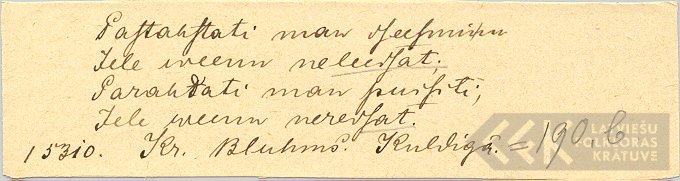 Pastahstati man dseesmiņu
Jele weenu neleedsat;
Parahdati man puisiti,
Jele weenu neredsat.
15310. Kr. Bluhms. Kuldigā. = 190,6
LATVIEŠU
FOLKLORAS
KRĀTUVE